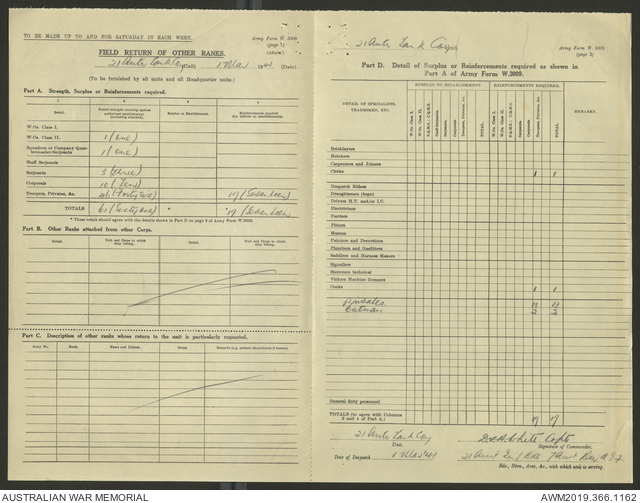 TO BE MADE UP TO AND FOR SATURDAY IN EACH WEEK.
Army Form W. 3009
(page 1)
FIELD RETURN OF OTHER RANKS.
21 Anti Tank Coy (Unit) 1 Mar 1941 (Date).
(To be furnished by all units and all Headquarter units.)
Part A. Strength, Surplus or Reinforcements required.
Detail.
Surplus to Establishment.
W.Os. Class I.
W.Os. Class II. 1 (one)
Squadron or Company Quartermaster-Serjeants 1 (one)
Staff Serjeants
Serjeants 3 (three)
Corporals 10 (Ten)
Troopers, Privates, &c. 46 (Forty six) 17 (Seventeen)
TOTALS 61 (Sixty one) * * 17 (Seventeen)
* These totals should agree with the details shown in Part D on page 2 of Army Form W. 3009.
Part B. Other Ranks attached from other Corps.
Detail. Unit and Corps to which they belong. Detail. Unit and Corps to which they belong.
Part C. Description of other ranks whose return to the unit is particularly requested.
Army No. Rank. Name and Initials. Corps. Remarks (e.g. present whereabouts if known).
21 Anti Tank Coy
Army Form W. 3009
(page 2)
Part D. Detail of Surplus or Reinforcements required as shown in
Part A of Army Form W.3009.
SURPLUS TO ESTABLISHMENT. REINFORCEMENTS REQUIRED.
DETAIL OF SPECIALISTS, TRADESMEN, ETC.
W.Os. Class I. W.Os. Class II. S.Q.M.S., C.Q.M.S. Staff-Serjeants. Serjeants. Corporals. Troopers, Privates, &c. TOTAL. W.Os. Class I. W.Os. Class II. S.Q.M.S., C.Q.M.S. Staff-Serjeants. Serjeants. Corporals. Troopers, Privates, &c. TOTAL.
REMARKS.
Bricklayers
Butchers
Carpenters and Joiners
Clerks 1 1
Despatch Riders
Draughtsmen (topo)
Drivers H.T. and/or I.C.
Electricians
Farriers
Fitters
Masons
Painters and Decorators
Plumbers and Gasfitters
Saddlers and Harness Makers
Signallers
Storemen technical
Vickers Machine Gunners
Cooks 1 1
Privates 13 13
Batmen 2 2
General duty personnel
TOTALS (to agree with Columns 3 and 4 of Part A.) 17 17
21 Anti Tank Coy
Unit.
White Capt
Signature of Commander.
Date of Despatch 1 Mar 41
Bde., Divn., Area, &c., with which unit is serving.
AUSTRALIAN WAR MEMORIAL
AWM2019.366.1162